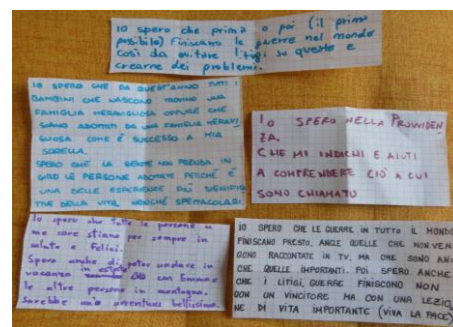 IO spero che prima o poi (il prima
possibile) finiscano le guerre nel mondo
così da evitare litigi su queste e
crearne dei problemi.
IO SPERO CHE DA QUEST'ANNO TUTTI I
BAMBINI CHE NASCONO TROVINO UNA
FAMIGLIA MERAVIGLIOSA OPPURE CHE
SIANO ADOTTATI DA UNA FAMIGLIA MERAVI
GLIOSA COME È SUCCESSO A MIA
SORELLA.
SPERO CHE LA GENTE NON PRENDA IN
GIRO LE PERSONE ADOTTATE PERCHÉ È
UNA DELLE ESPERIENZE PIÙ SIGNIFICA
TIVE DELLA VITA, NONCHÉ SPETTACOLARI.
Io SPERO NELLA PROVVIDEN
ZA.
CHE MI INDICHI E AIUTI
A COMPRENDERE CIÒ A CUI
SONO CHIAMATO
Io spero che tutte le persone a
me care stiano per sempre in
salute e Felici.
Spero anche di poter andare in
vacanza in estate con
le altre persone in montagna.
Sarebbe un'avventura bellissima.
IO SPERO CHE LE GUERRE IN TUTTO IL MONDO
FINISCANO PRESTO, ANCHE QUELLE CHE NON VEN
GONO RACCONTATE IN TV, MA CHE SONO AN
CHE QUELLE IMPORTANTI. POI SPERO ANCHE
CHE I LITIGI, GUERRE FINISCONO NON
CON UN VINCITORE MA CON UNA LEZIO
NE DI VITA IMPORTANTE (VIVA LA PACE)